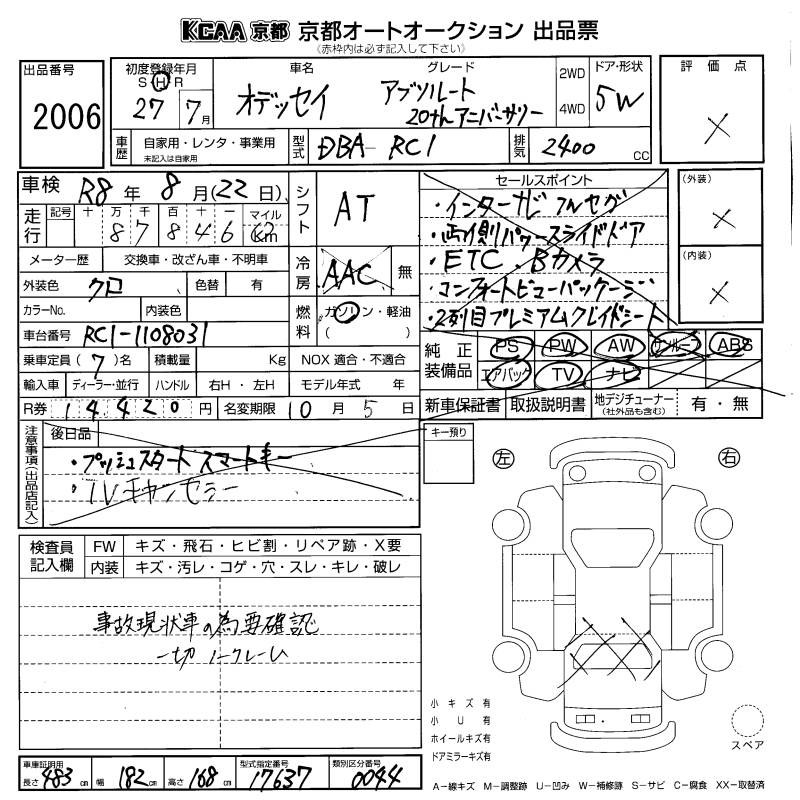 KCAA 京都 京都オートオークション 出品票
(赤枠内は必ず記入して下さい)
出品番号
2006
初度登録年月
S H R
27 7月
車名
オデッセイ
グレード
アブソルート
20th アニバーサリー
2WD
4WD
ドア・形状
5W
評価点
×
車歴
自家用・レンタ・事業用
未記入は自家用
型式
DBA-RC1
排気
2400 CC
車検 R8年 8月(22日)
走行
記号 十 万 千 百 十 一 マイル
8 7 8 4 6 Km
シフト
AT
セールスポイント
・インターナビ フルセグ
・両側パワースライドドア
・ETC. Bカメラ
・コンフォートビューパッケージ
・2列目プレミアムクレイドルシート
(外装)
×
(内装)
×
メーター歴 交換車・改ざん車・不明車
冷房
AAC 無
外装色 クロ 色替 有
カラーNo. 内装色
燃料
ガソリン・軽油
( )
車台番号 RC1-1108031
乗車定員 (7)名 積載量 Kg NOX 適合・不適合
純正装備品
PS PW AW サンルーフ ABS
エアバック TV ナビ
輸入車 ディーラー・並行 ハンドル 右H・左H モデル年式 年
R券 14,420円 名変期限 10月5日
新車保証書 取扱説明書 地デジチューナー(社外品も含む) 有・無
注意事項(出品店記入)
後日品
・プッシュスタート スマートキー
・TVキャンセラー
キー預り
左 右
検査員記入欄
FW キズ・飛石・ヒビ割・リペア跡・X要
内装 キズ・汚レ・コゲ・穴・スレ・キレ・破レ
事故現状車の為要確認
一切ノークレーム
小キズ有
小U有
ホイールキズ有
ドアミラーキズ有
スペア
車庫証明用
長さ 483cm 幅 182cm 高さ 168cm
型式指定番号
17637
類別区分番号
0044
A−線キズ M−調整跡 U−凹み W−補修跡 S−サビ C−腐食 XX−取替済